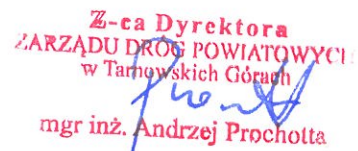 Z-ca Dyrektora
ZARZĄDU DRÓG POWIATOWYCH
w Tarnowskich Górach
mgr inż. Andrzej Prochotta